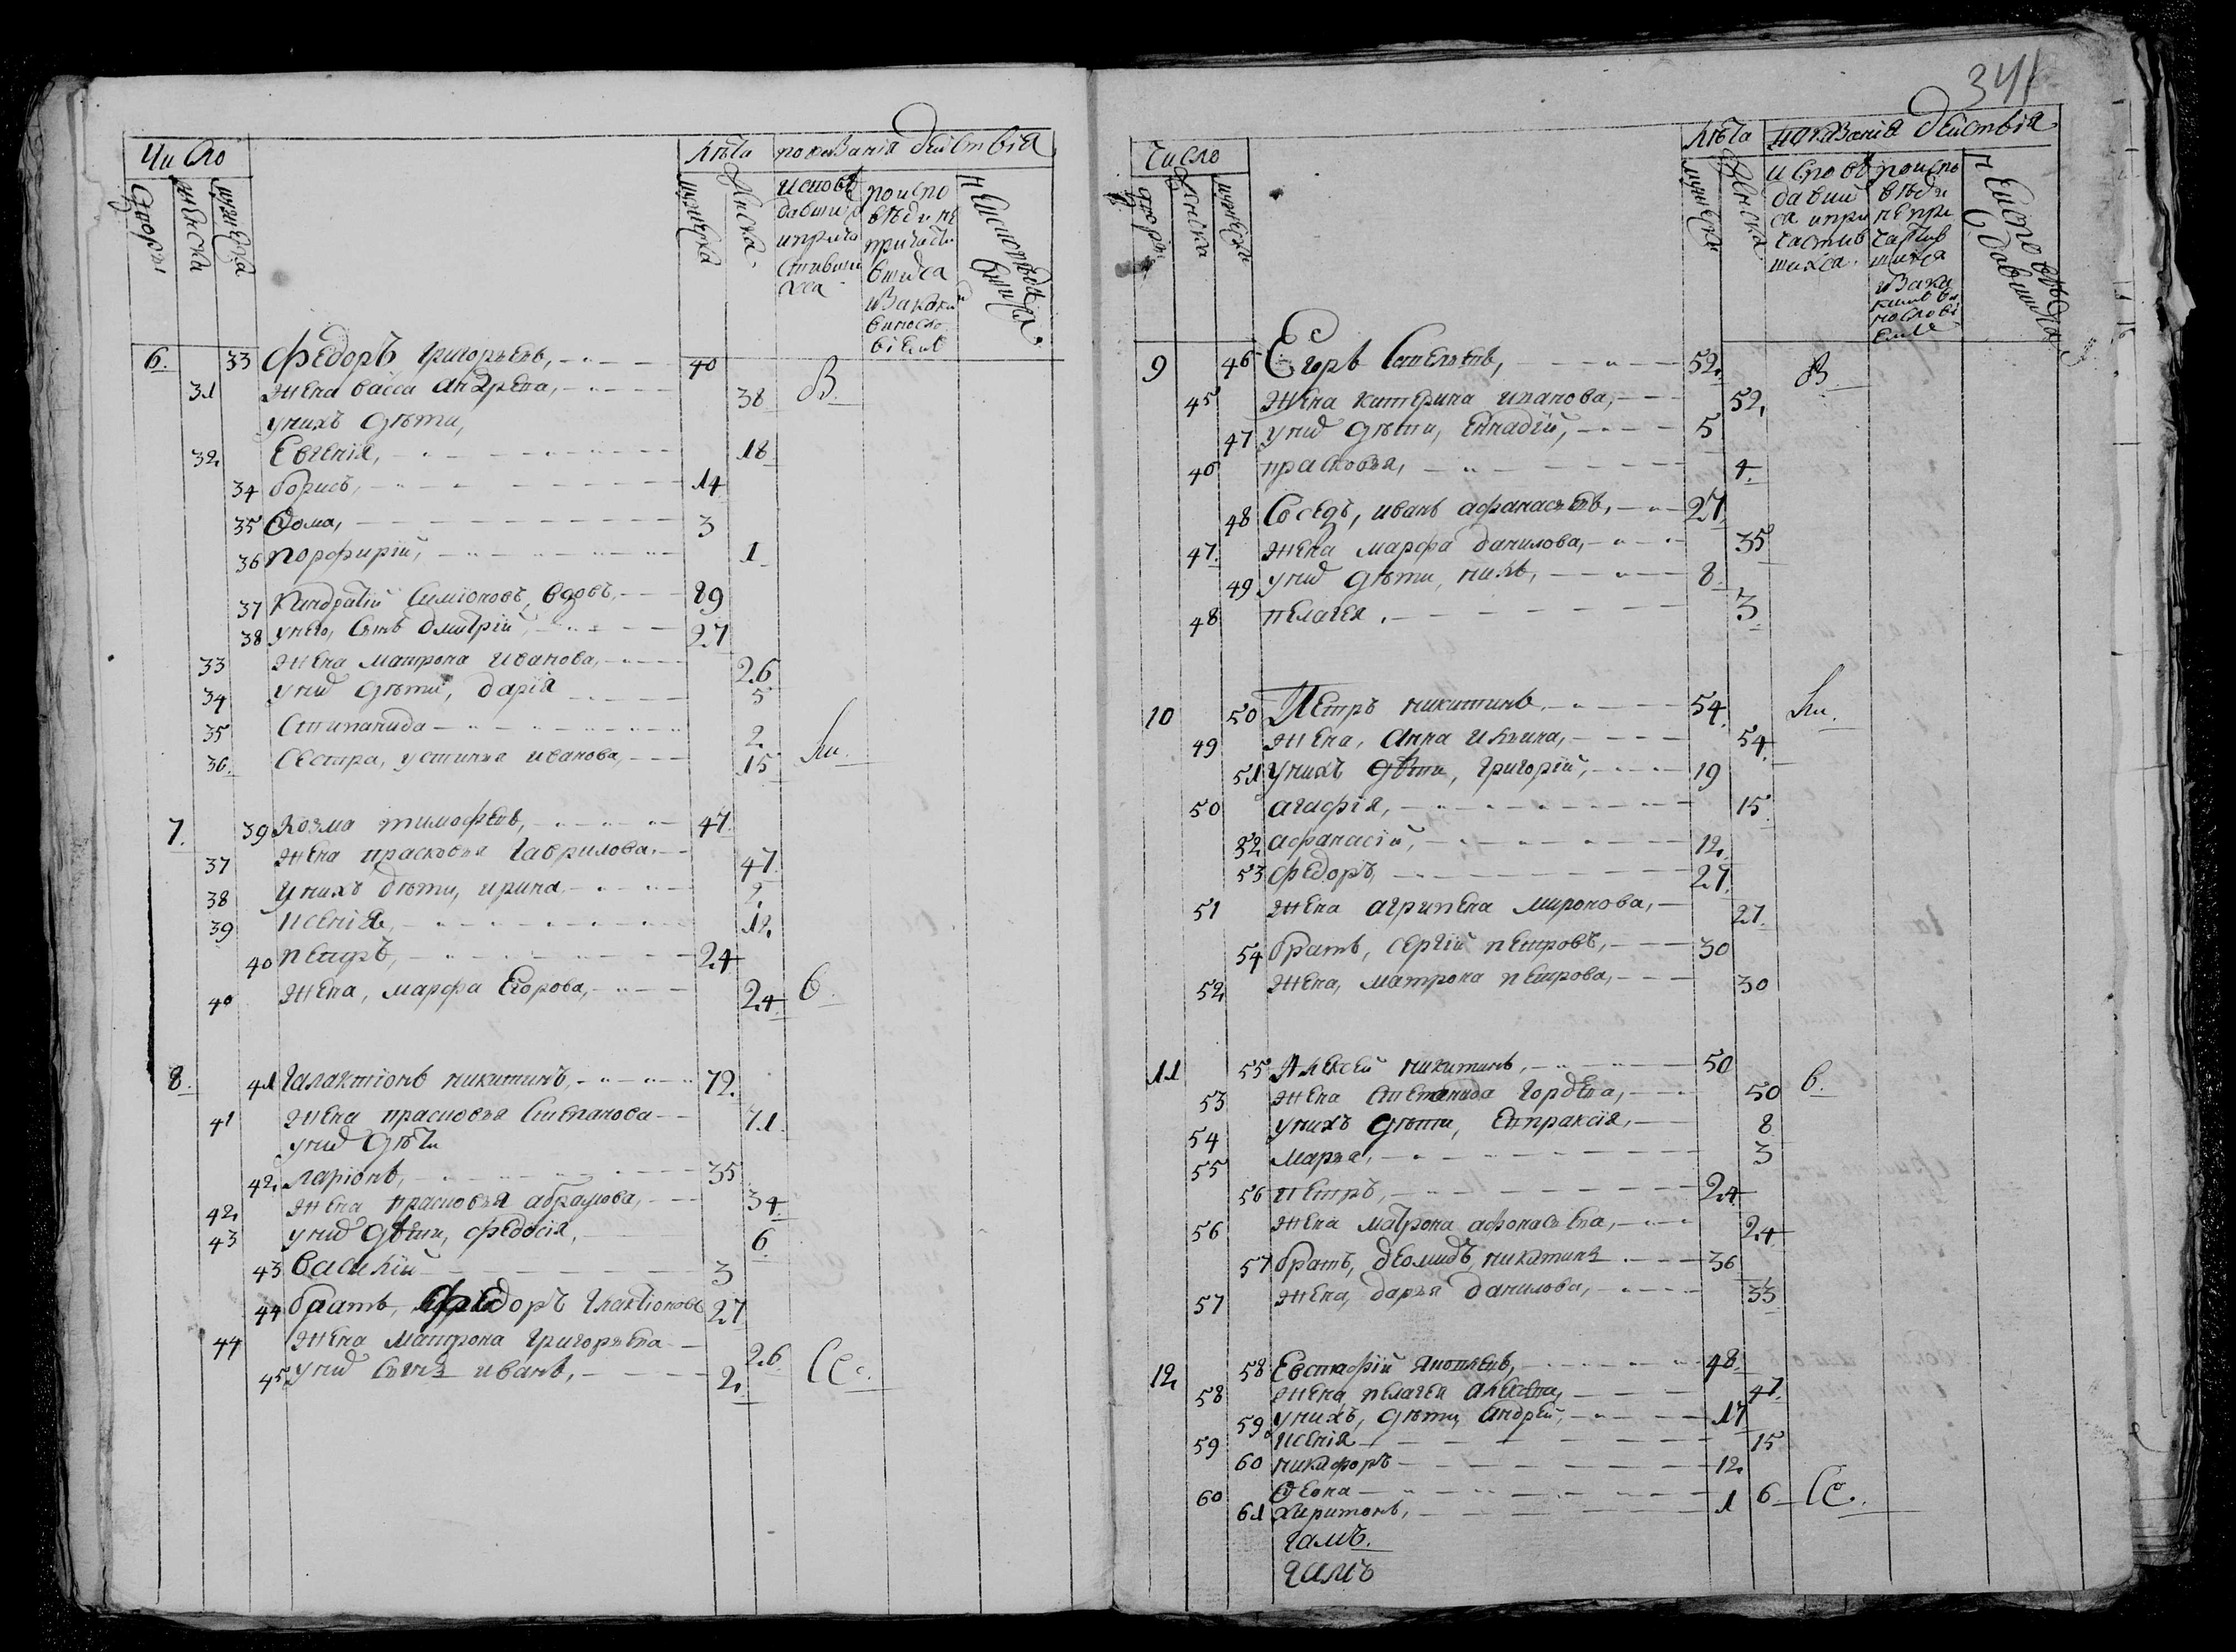 Число Лѣта показанія дѣйствія
дворы женска мужеска мужеска женска
исповѣ
давши
и прича
стивши
хса
по испо
вѣди не
причасти
вшихса
и за каки
виносло
віемъ
не исповѣда
вшихса
6. 33 Федоръ Григорьевъ, 40
31 жена васса андреева, 38 В.
у нихъ дѣти,
32 Евгенія, 18
34 борисъ, 14
35 Ѳома, 3
36 порфирій, 1
37 Киндратій Симіоновъ, вдовъ, 89
38 у него, сынъ дмитрій, 27
33 жена матрона иванова, 26
34 у нид дѣти, дарія 5
35 Стипанида 2
36. Сестра, устинья иванова, 15
7. 39 Козма тимофѣевъ, 47
37 жена прасковья гаврилова. 47
38 у нихъ дѣти, ирина 2
39 ксенія, 12
40 петръ, 24
40 жена, марфа Егорова, 24 в.
8. 41 Галактіонъ никитинъ, 72.
41 жена прасковья Степанова 71
у нид дѣти
42 ларіонъ, 35
42 жена прасковья абрамова, 34
43 у нид дѣти, федосія, 6
43 василій 3
44 братъ, федоръ Глактіоновъ 27
44 жена Матрона Григорьева 26
45 у нид сынъ иванъ, 2. Се.
341
Число Лѣта показанія дѣйствія
дворы женска мужеска мужеска женска
исповѣ
давши
са и при
частив
шихса.
по испо
вѣди
не при
частив
шихса
и за каки
кимъ ви
нослові
емъ
не исповѣ
давшихса
9 46 Егоръ Савельевъ, 52. В.
45 жена катерина иванова, 52.
47 у нид дѣти, Еннадій, 5
46 прасковья, 4.
48 Соседъ, иванъ афанасьевъ, 27
47. жена марфа данилова, 35
49 у нид дѣти, никъ, 8
48 пелагея. 3
10 50 Петръ никитинъ. 54
49 жена, анна ильина, 54
51 у нихъ дѣти, григорій, 19
50 агафія, 15
52 афанасій, 12
53 федоръ, 27
51 жена агрипена миронова, 27
54 братъ, сергій петровъ, 30
52 жена, матрона петрова, 30
11 55 Алексей никитинъ, 50
53 жена степанида гордеева, 50 в.
54 у нихъ дѣти, Епраксія, 8
55 марья, 3
56 петръ, 24
56 жена матрона афонасьева, 24
57 братъ, деомидъ никитинъ 36
57 жена, дарья данилова, 33
12 58 Евстафій 48.
58 жена пелагея алексеева, 47.
59 у нихъ, дѣти, андрей, 17
59 ксенія 15
60 никифоръ 12
60 Ѳеона 6 Се.
61 харитонъ, 1